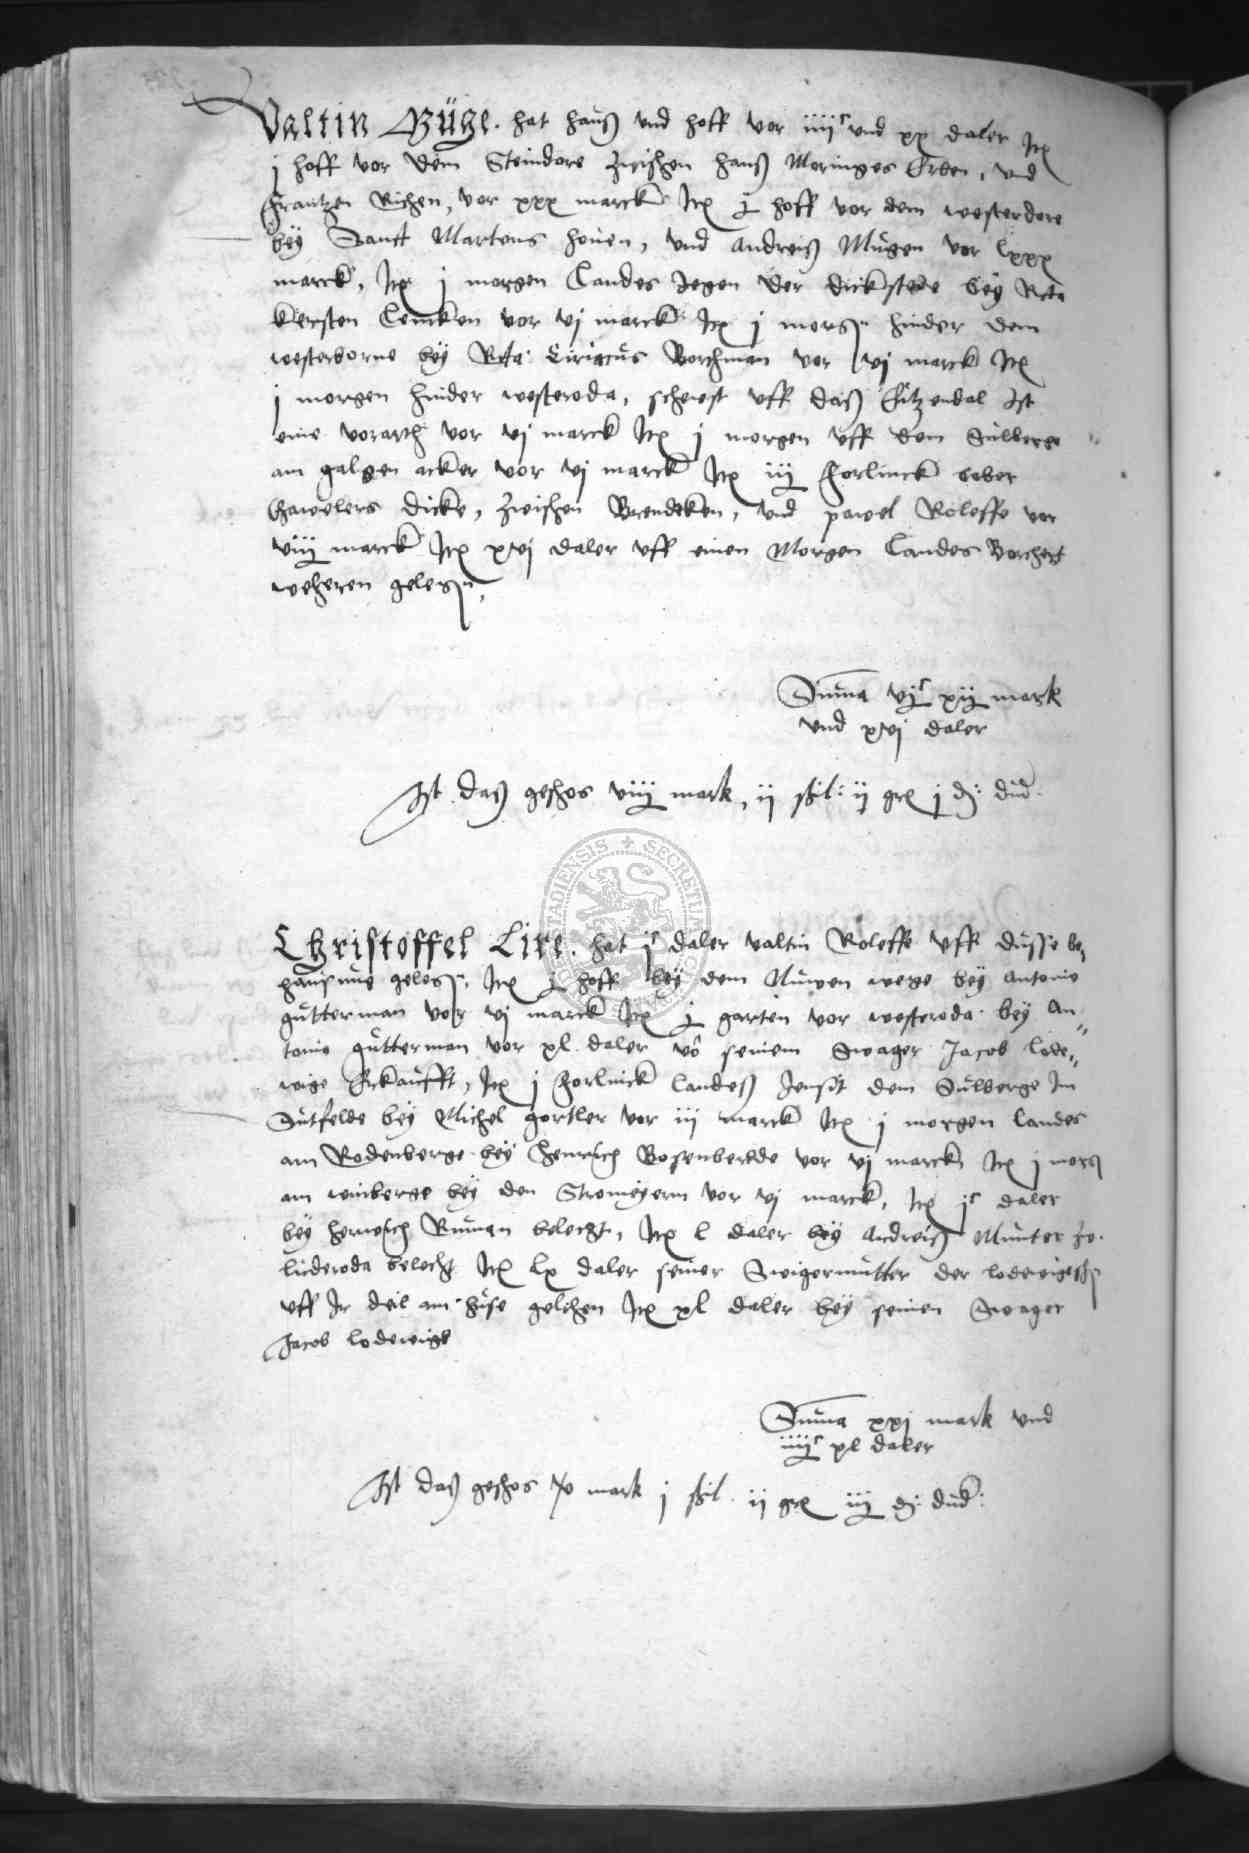 Valtin Büthe. hat hauß vnd hoff vor iiijᶜ vnd xx daler Itē
j hoff vor dem Steindore zwischen hanß Moringes Erben, vnd
Frantzen Richen, vor xxx marck Itē j hoff vor dem westerdore
bey Sanct Martens houen, vnd andreiß Mugen vor lxxx
marck, Itē j morgen Landes Jegen der dickstede bey
kersten Lencken vor vj marck Itē j morgn hinder dem
westerborne bey Ciriacus Borchman vor vj marck Itē
j morgen hinder westeroda, scheust vff daß Ist
eine vorarth vor vj marck Itē j morgen vff dem Sulberge
am galgen acker vor vj marck Itē iij Forlinck ober
dicke, zwischen Brendeken, vnd pawel Roleffe vor
viij marck Itē xvj daler vff einen Morgen Landes Borchert
weheren gelegn,
Suma vjᶜ xij mark
vnd xvj daler
Ist daß geschos viij mark, ij schil: ij grē j d: dud
Christoffel Lire. hat jᶜ daler valtin Roleffe vff dusse be
hausung gelegn, Itē j hoff bey dem Nuwen wege bey Antonio
gutterman vor vj marck Itē j garten vor westeroda bey An
tonio gutterman vor xl daler vō seinem Swager Jacob lode
wige Erkaufft, Itē j Forlinck landeß Jensit dem Sulberge Im
Sutfelde bey Michel gortler vor iij marck Itē j morgen landes
am Rodenberge bey Henrich Bosenberde vor vj marck, Itē j morg
am winberge bey den Stromeyern vor vj marck, Itē jᶜ daler
bey henrich Ruman belecht, Itē l daler bey Andreiß Munter zo
linderoda belecht Itē lx daler seiner Swigermutter der lodewigeschn
vff Ir deil am huse gelehen Itē xl daler bey seinen Swager
Jacob lodewige
Suma xxj mark vnd
iiijᶜ xl daler
Ist daß geschos v mark j schil. ij grē iij d: dud:
SECRETUM